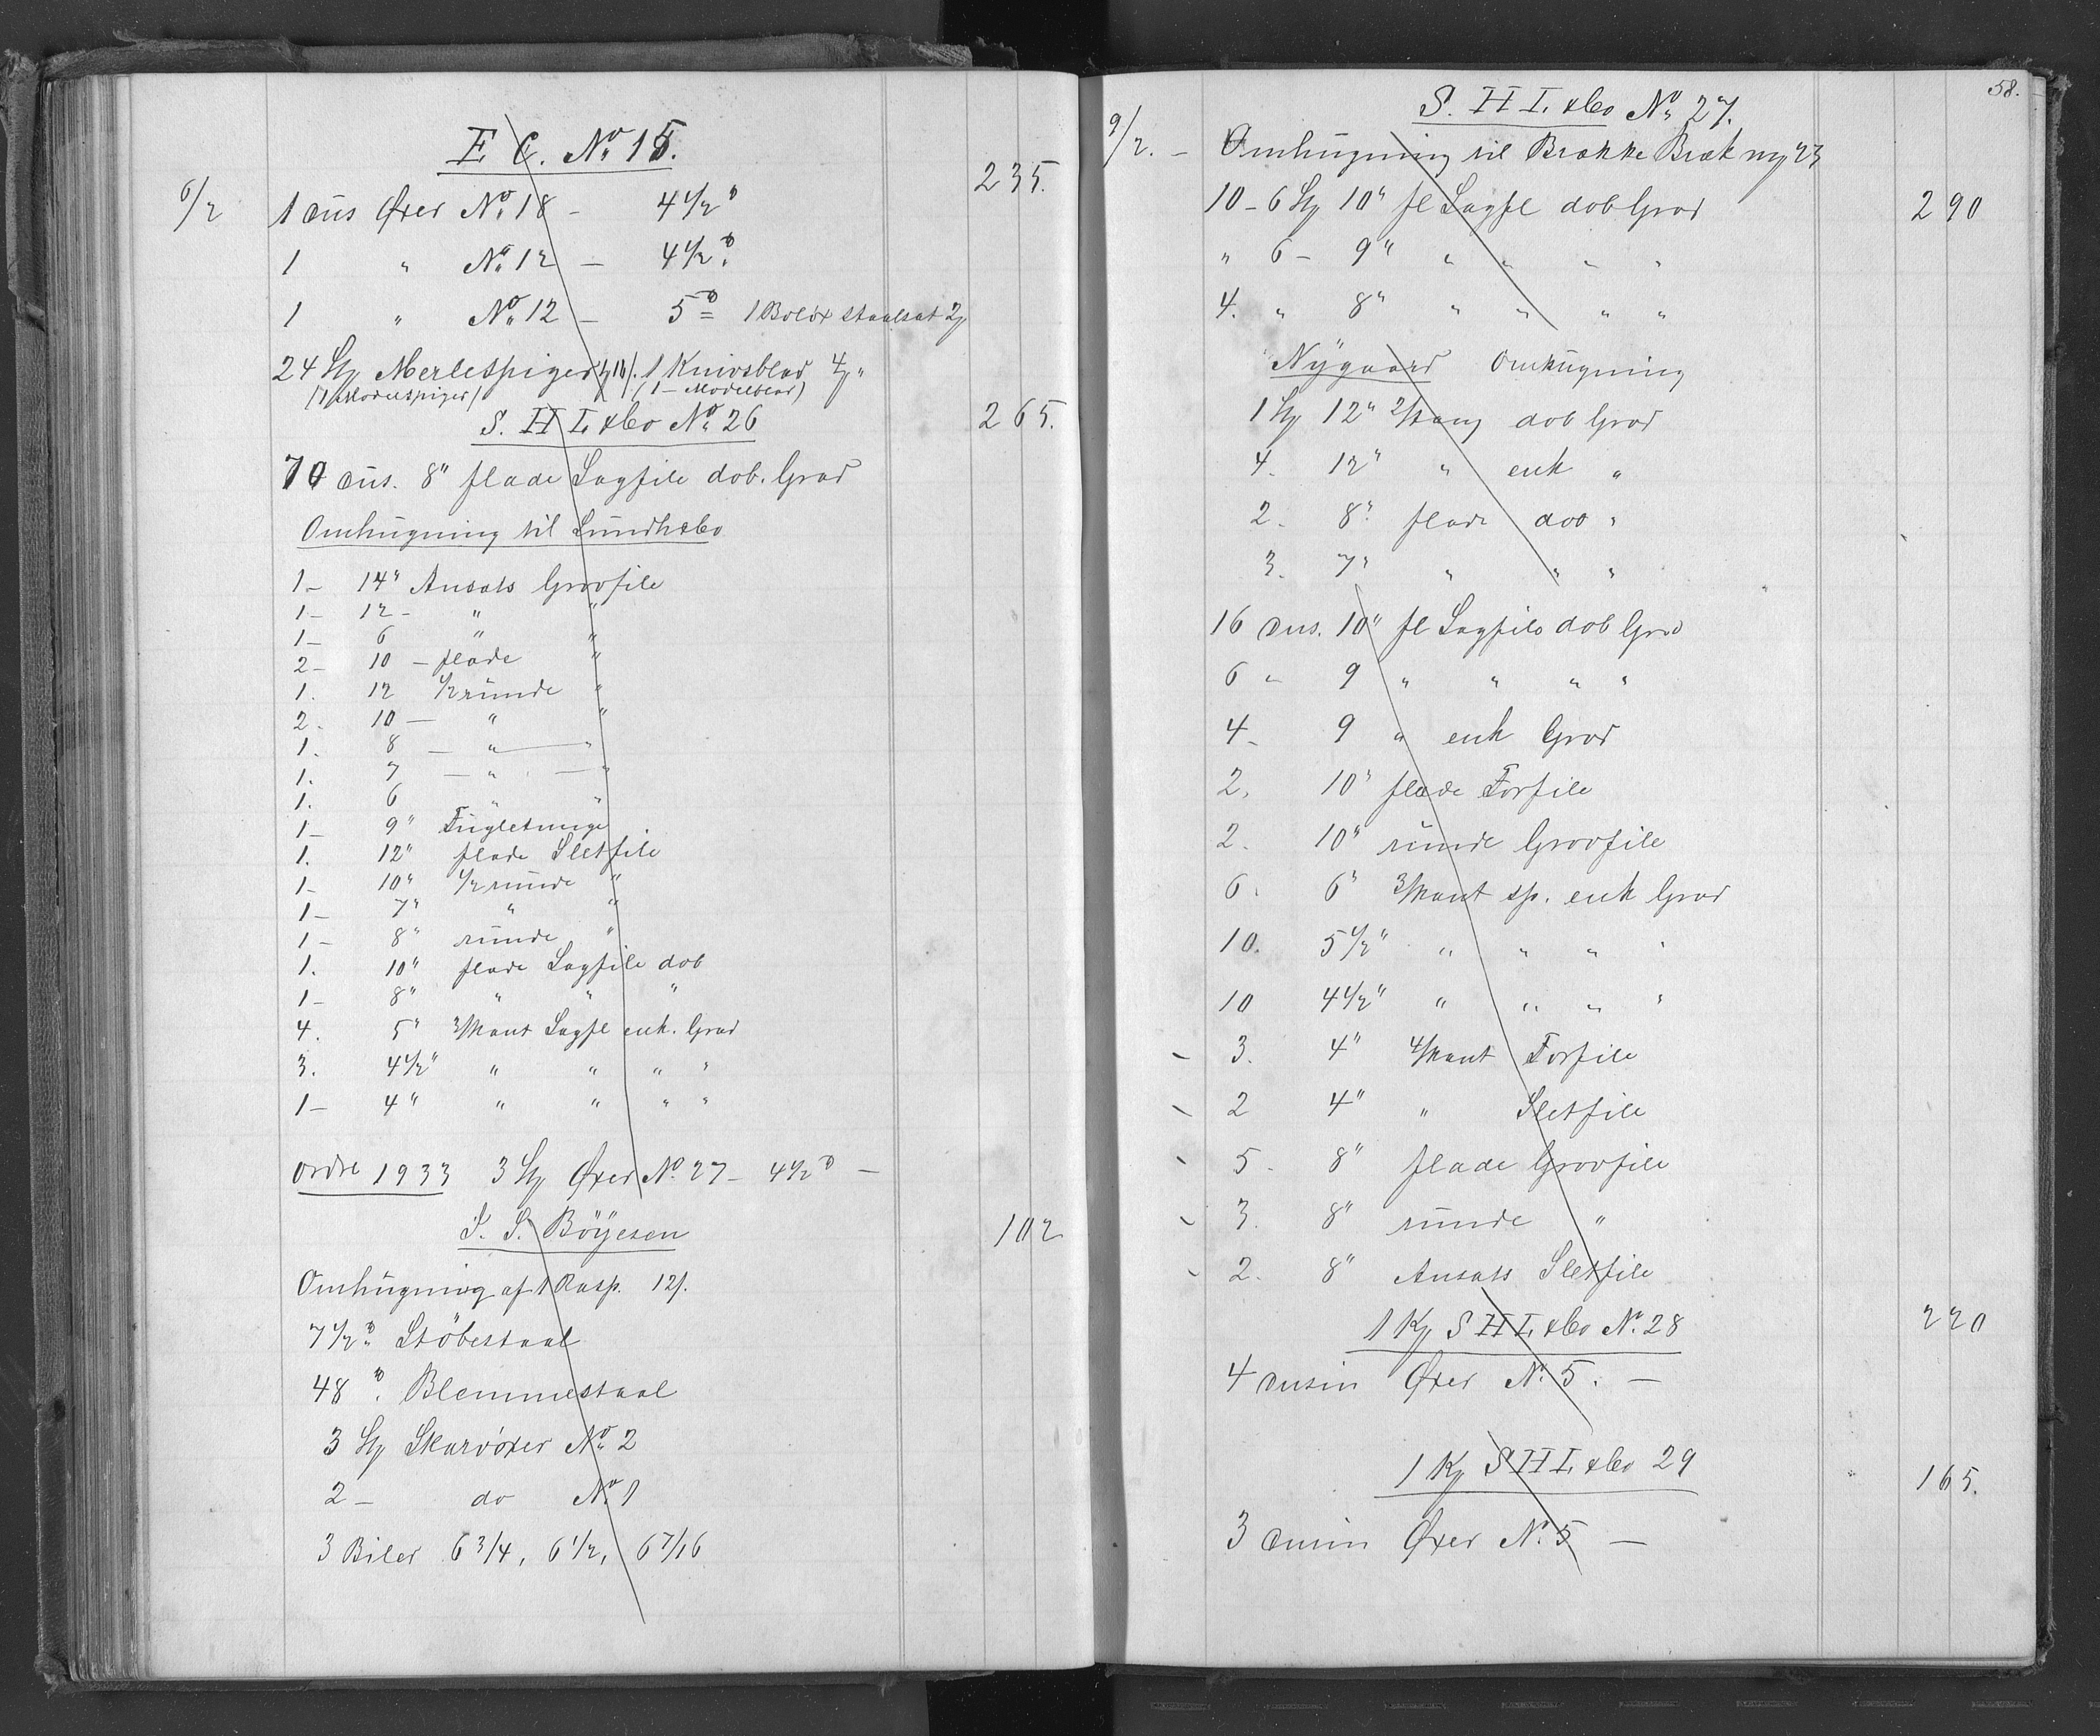 E C. No 15.
235.
6/2 1 dus Øxer No 18 - 4 1/2 ℔
1 " No 12 - 4 1/2 ℔
1 " No 12 - 5 ℔ = 1 Boløx staalsat
24 St Merlespiger 1 Knivsblad
(1 Modelspiger) (1 - Modelblad)
S. H L. & Co No 26 265.
70 dus. 8" flade Sagfile dob. Grad
Omhugning til Lundh & Co
1 - 14" Ansats Grovfile
1 - 12 - " "
1 - 6 " "
2 - 10 - flade "
1. 12 1/2 runde "
2. 10 - " "
1. 8 - " - "
1. 7 - " - "
1. 6 " "
1 - 9" Fugletunge
1. 12" flade Sletfile
1 - 10" 1/2 runde "
1 - 7" " "
1 - 8" runde "
1. 10" flade Sagfile dob
1 - 8" " " "
4. 5" 3/kant Sagfl enk. Grad
3. 4 1/2" " " " "
1 - 4" " " " "
Ordre 1933 3 St Øxer No. 27 - 4 1/2 ℔ -
S. S. Böÿesen 102
Omhugning af 1 Rasp. 12/.
7 1/2 ℔ Stöbestaal
48 ℔. Blemmestaal
3 St Skarvöxer No 2
2 - do No 1
3 Biler 6 3/4, 6 1/2, 6 7/16
58.
S. H L. & Co No 27.
9/2. - Omhugning til Brække Bræk
10 - 6 St 10" fl Sagfl dob Grad 290
" 6 - 9" " " " "
4. " 8" " " " "
Nÿgaard Omhugning
1 St 12" dob Grad
4. 12" " enk "
2. 8" flade dob "
3. 7" " " "
16 dus. 10" fl Sagfile dob Grad
6 " 9 " " " "
4 - 9 " enk Grad
2. 10" flade Forfile
2. 10" runde Grovfile
6. 6" 3/kant sp. enk Grad
10. 5 1/2" " " " "
10 4 1/2" " " " "
3. 4" 4/kant Forfile
2 4" " Sletfile
5 - 8" flade Grovfile
3. 8" runde "
2. 8" Ansats Sletfile
1 K S H L. & Co No. 28 220
4 dusin Øxer No. 5. -
1 K S H L. & Co 29
165.
3 dusin Øxer No. 5 -